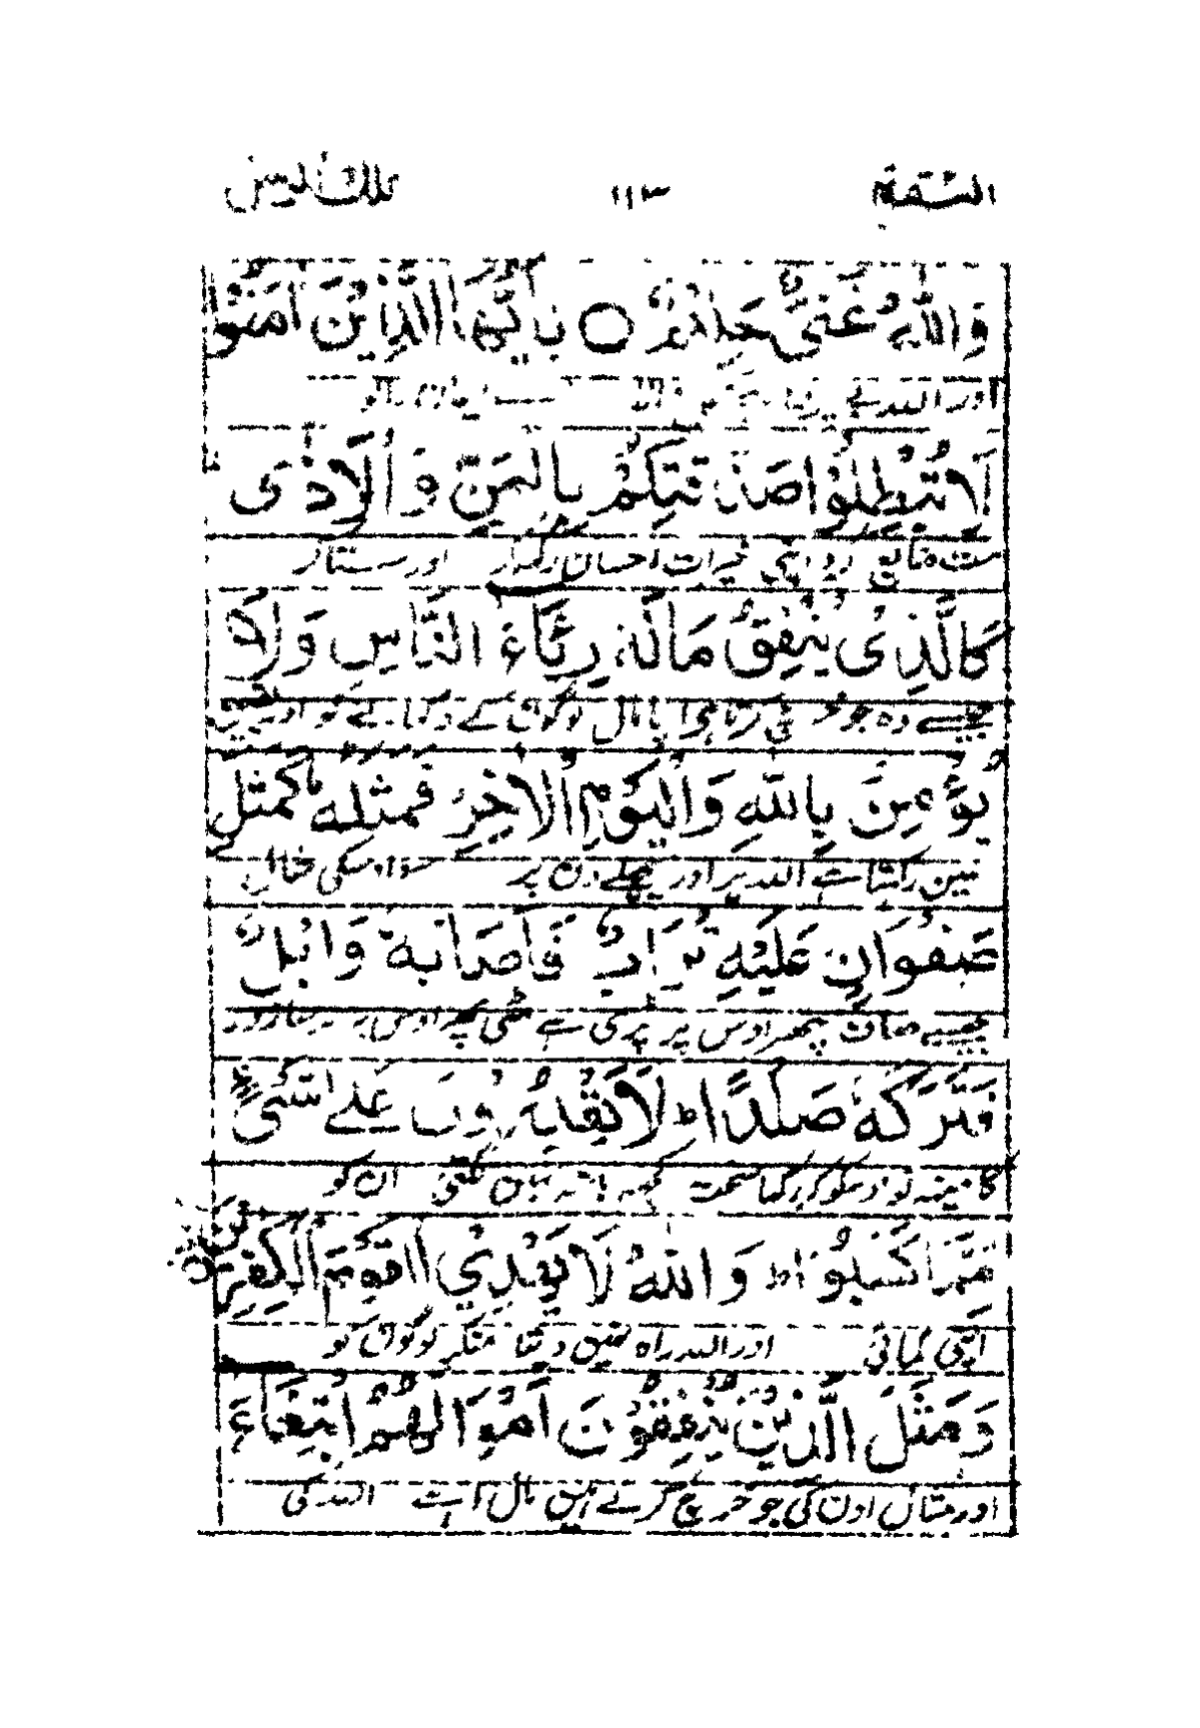 البقرة ١١٣ تلك الرسل
وَاللّٰهُ غَنِیٌّ حَلِیْمٌ ○ یٰاَیُّهَا الَّذِیْنَ اٰمَنُوْا
اور اللہ بے
لَا تُبْطِلُوْا صَدَقٰتِكُمْ بِالْمَنِّ وَالْاَذٰی
مت ضائع کرو اپنی خیرات احسان رکھکر اور ستا کر
كَالَّذِیْ یُنْفِقُ مَالَهٗ رِئَآءَ النَّاسِ وَلَا
جیسے وہ جو خرچ کرتا ہی اپنا مال لوگوں کے دکھانے کو اور نہیں
یُؤْمِنُ بِاللّٰهِ وَالْیَوْمِ الْاٰخِرِ فَمَثَلُهٗ كَمَثَلِ
یقین رکھتا ہے اللہ پر اور پچھلے دن پر سو اوسکی مثال
صَفْوَانٍ عَلَیْهِ تُرَابٌ فَاَصَابَهٗ وَابِلٌ
جیسے صاف پتھر اوس پر پڑی ہے مٹی پھر اوس پر برسا زور
فَتَرَكَهٗ صَلْدًا ط لَا یَقْدِرُوْنَ عَلٰی شَیْءٍ
کا مینہ تو اوسکو کر رکھا سخت کچھ ہاتھ نہیں لگتی ان کو
مِّمَّا كَسَبُوْا ط وَاللّٰهُ لَا یَهْدِی الْقَوْمَ الْكٰفِرِیْنَ
اپنی کمائی اور اللہ راہ نہیں دیتا منکر لوگوں کو
وَمَثَلُ الَّذِیْنَ یُنْفِقُوْنَ اَمْوَالَهُمُ ابْتِغَآءَ
اور مثال اون کی جو خرچ کرتے ہیں مال اللہ کی